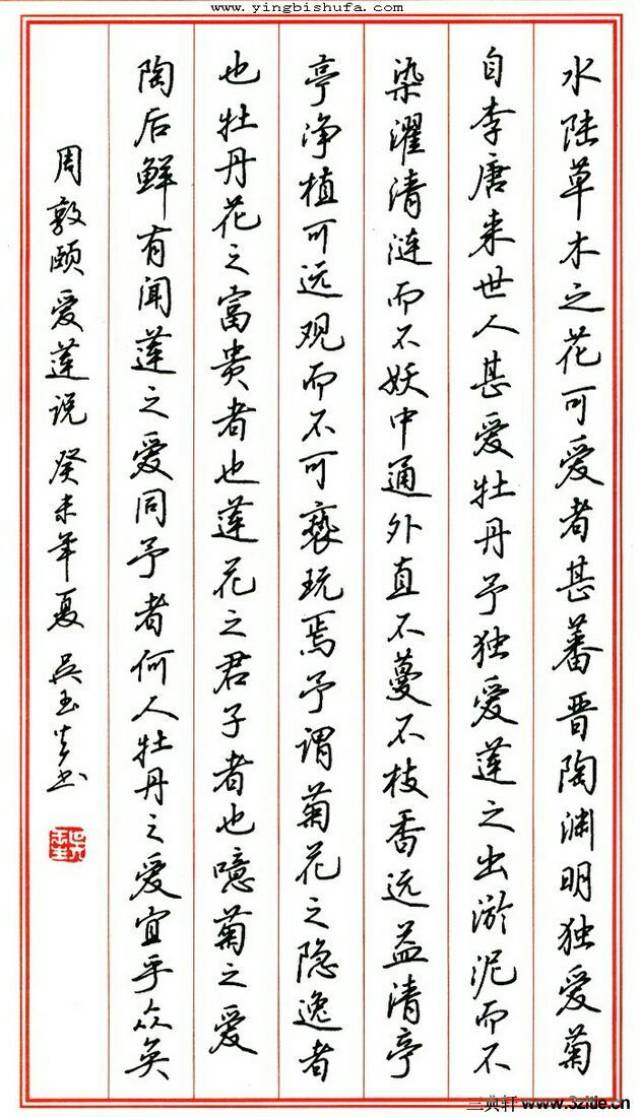 www.yingbishufa.com
水陆草木之花可爱者甚蕃晋陶渊明独爱菊
自李唐来世人甚爱牡丹予独爱莲之出淤泥而不
染濯清涟而不妖中通外直不蔓不枝香远益清亭
亭净植可远观而不可亵玩焉予谓菊花之隐逸者
也牡丹花之富贵者也莲花之君子者也噫菊之爱
陶后鲜有闻莲之爱同予者何人牡丹之爱宜乎众矣
周敦颐爱莲说 癸未年夏 吴玉生书
www.3zitie.cn